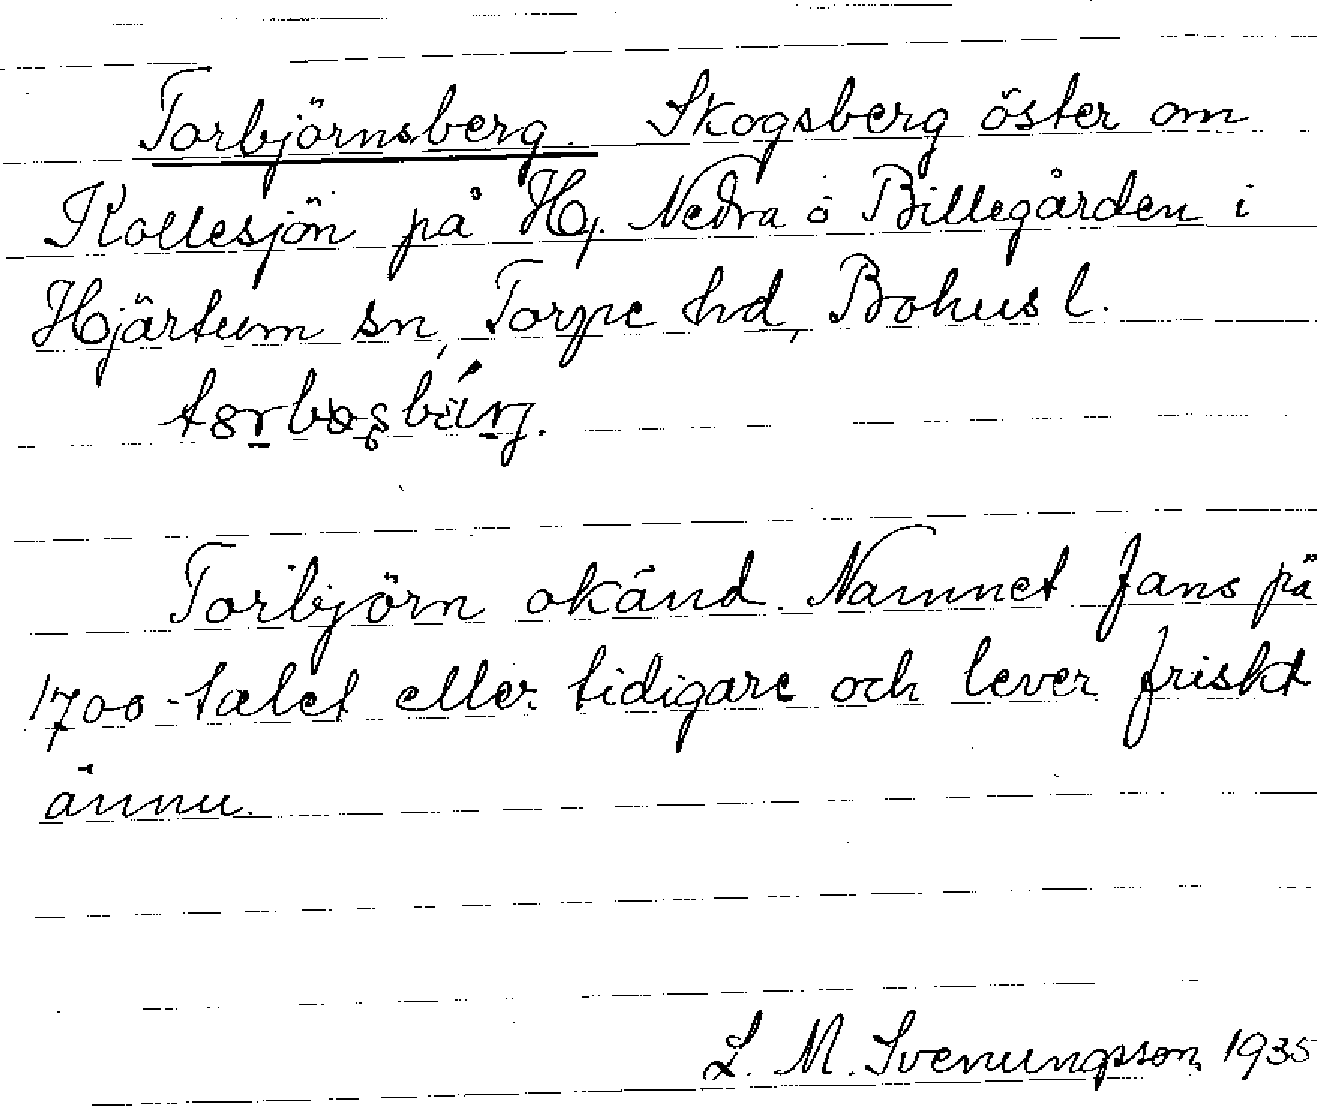 Torbjörnsberg. Skogsberg öster om
Kollesjön på Hj. Nedra o Billegården i
Hjärtum sn, Torpe hd, Bohusl.
Torbjörn okänd. Namnet fans på
1700-talet eller tidigare och lever friskt
ännu.
L. M. Svenungsson 1935